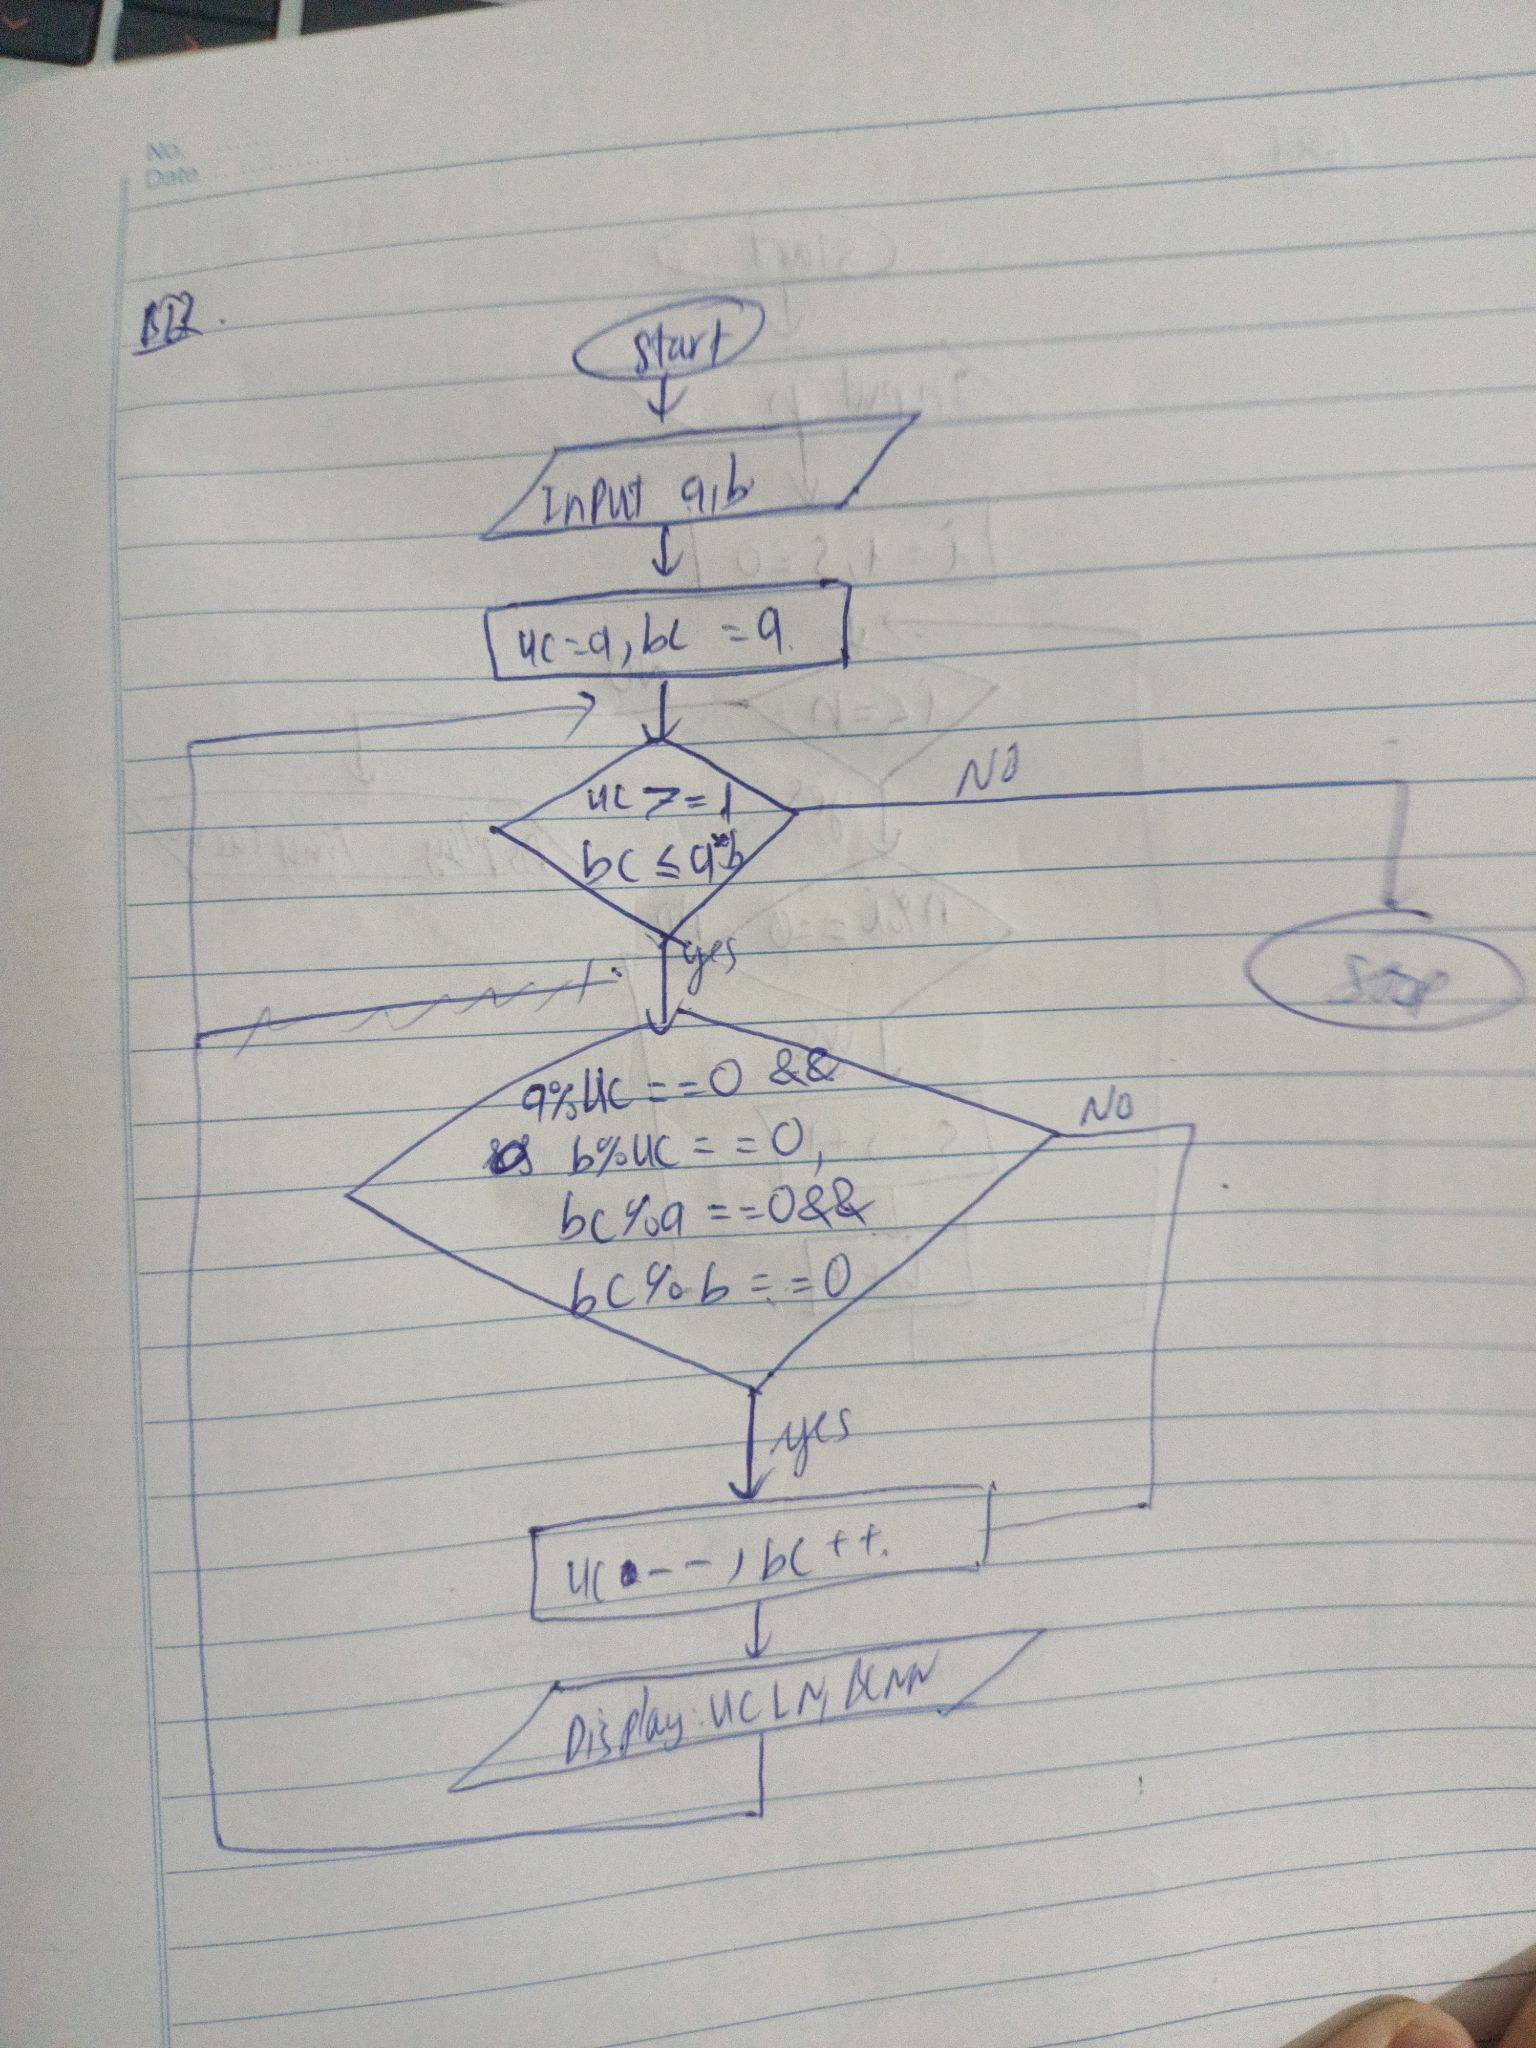 No.
Date
BT2.
Start
Input a,b
uc=a, bc = a.
uc >= 1
bc ≤ a*b
NO
yes
Stop
a%uc == 0 &&
b%uc == 0,
bc%a == 0 &&
bc%b == 0
NO
yes
uc--, bc++.
Display: UCLN, BCNN